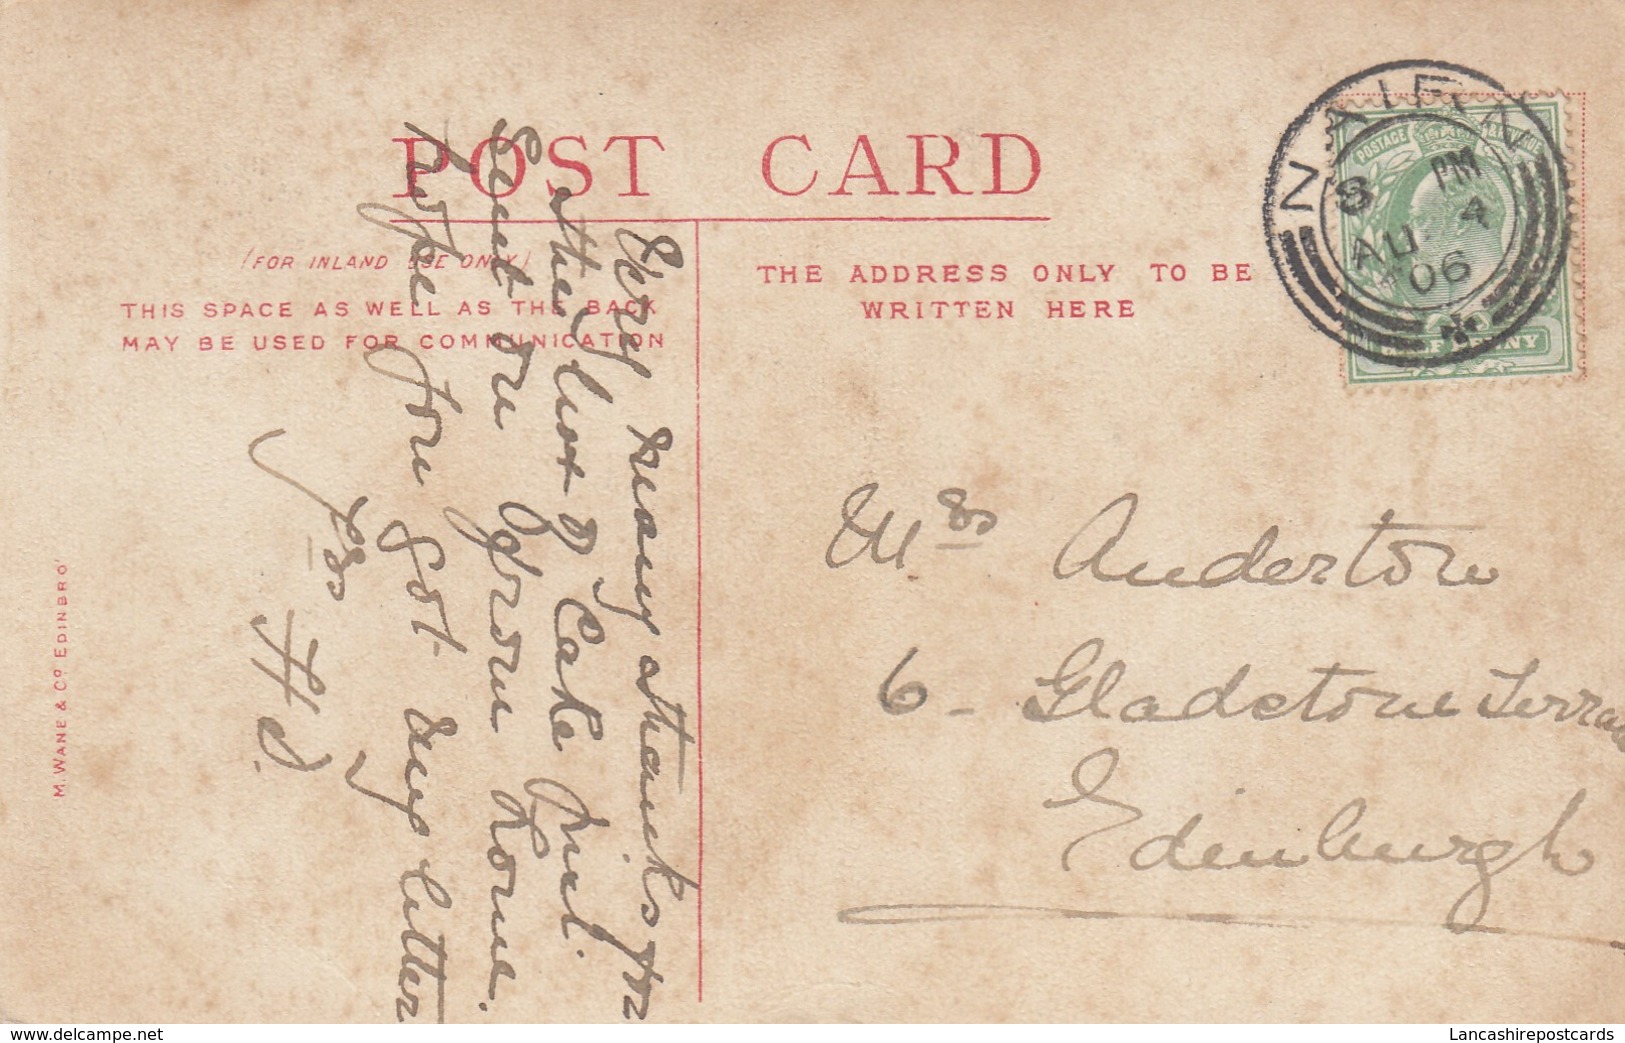 POST CARD
(FOR INLAND USE ONLY)
THIS SPACE AS WELL AS THE BACK
MAY BE USED FOR COMMUNICATION
THE ADDRESS ONLY TO BE
WRITTEN HERE
M. WANE & Co EDINBRO'
NAIRN
8 PM
AU 4
06
POSTAGE & REVENUE
HALF PENNY
Very many thanks for
the box of Cake
Sent on from home.
hope you got my letter
Yrs
H
Mrs Anderton
6 - Gladstone Terrace
Edinburgh
delcampe.net
Lancashirepostcards